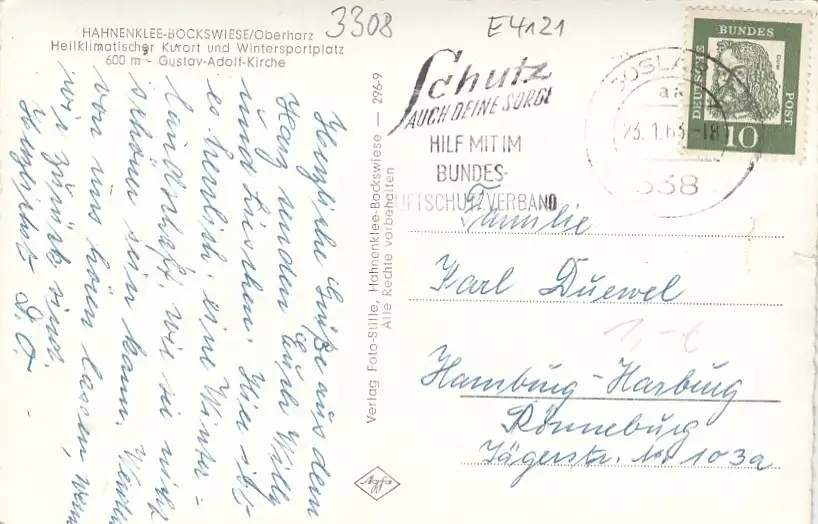 3308
E4121
HAHNENKLEE-BOCKSWIESE/Oberharz
Heilklimatischer Kurort und Wintersportplatz
600 m - Gustav-Adolf-Kirche
Schutz
AUCH DEINE SORGE
HILF MIT IM
BUNDES-
LUFTSCHUTZVERBAND
GOSLA
23.1.63-18
338
DEUTSCHE
BUNDES
POST
10
Herzliche Grüße aus dem
Harz senden Euch Willy
und Lieschen. Hier ist
es herrlich, eine Winter-
landschaft, wie sie nicht
schöner sein kann. Werden
von uns hören lassen, wenn
wir zurück sind.
Verlag Foto-Stille, Hahnenklee-Bockswiese — 296-9
Alle Rechte vorbehalten
Familie
Karl Duewel
Hamburg-Harburg
Rönneburg
Jägerstr. Nr 103a
Agfa